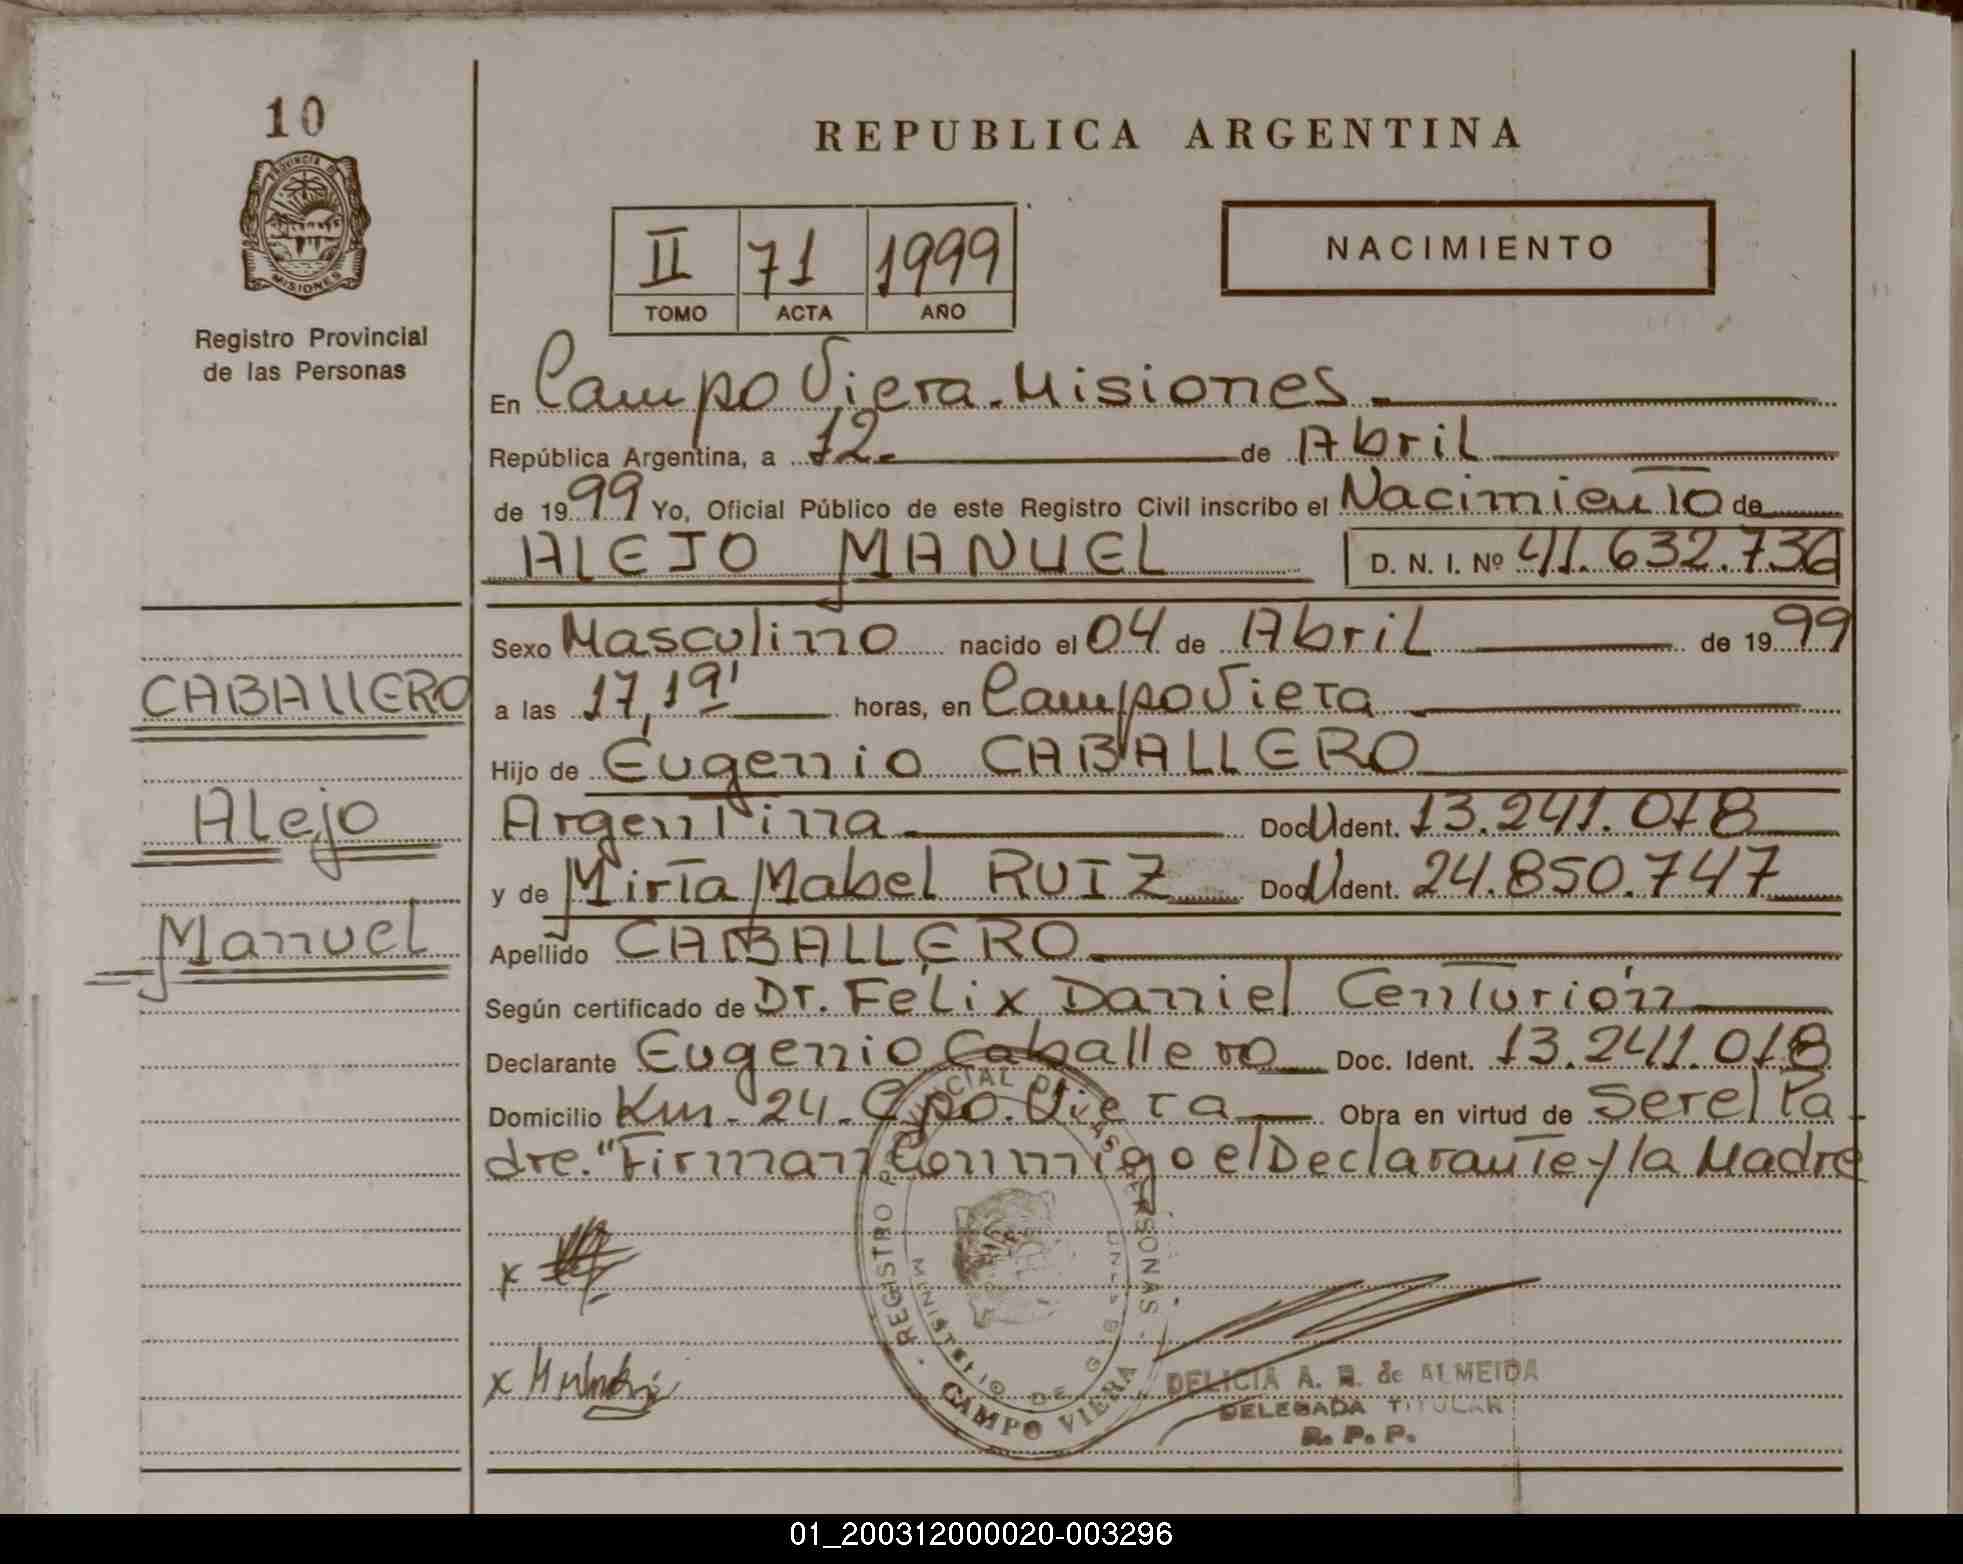 10
PROVINCIA DE
MISIONES
Registro Provincial
de las Personas
REPUBLICA ARGENTINA
II 71 1999
TOMO ACTA AÑO
NACIMIENTO
En Campo Viera - Misiones
República Argentina, a 12 de Abril
de 1999 Yo, Oficial Público de este Registro Civil inscribo el Nacimiento de
ALEJO MANUEL D. N. I. Nº 41.632.736
Sexo Masculino nacido el 04 de Abril de 1999
a las 17,19' horas, en Campo Viera
Hijo de Eugenio CABALLERO
Argentina Doc U Ident. 13.241.018
y de Mirta Mabel RUIZ Doc U Ident. 24.850.747
Apellido CABALLERO
Según certificado de Dr. Felix Daniel Centurión
Declarante Eugenio Caballero Doc. Ident. 13.241.018
Domicilio Km - 24 - Cpo. Viera Obra en virtud de Ser el Pa
dre. "Firman Conmigo el Declarante y la Madre
CABALLERO
Alejo
Manuel
x
x
REGISTRO PROVINCIAL DE LAS PERSONAS
MINISTERIO DE
CAMPO VIERA
DELICIA A. R. de ALMEIDA
DELEGADA TITULAR
R. P. P.
01_200312000020-003296